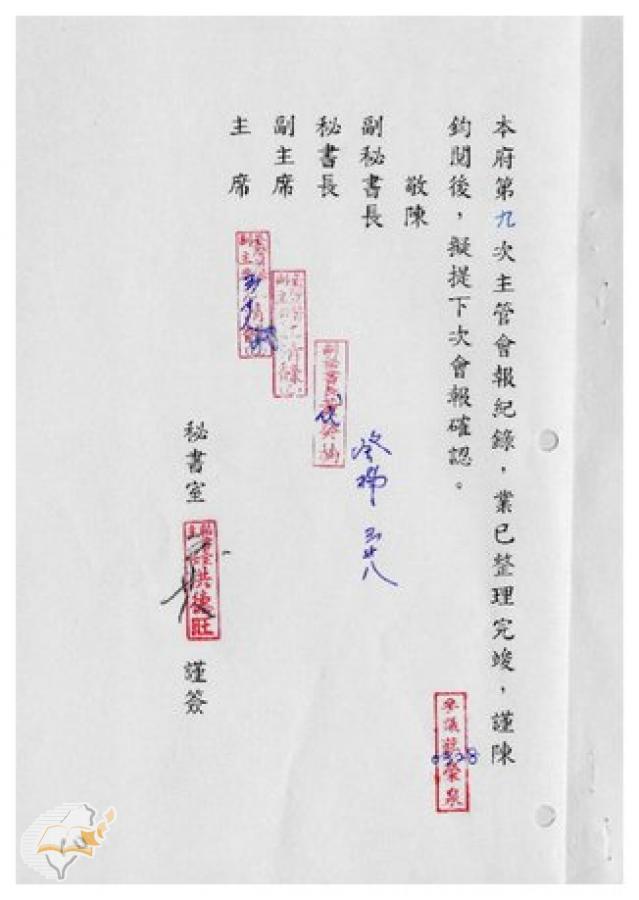 本府第九次主管會報紀錄，業已整理完竣，謹陳
鈞閱後，擬提下次會報確認。
敬陳
副秘書長
秘書長
副主席
主席
參議莊榮泉
0328
代
三廿八
秘書室 洪德旺 謹簽